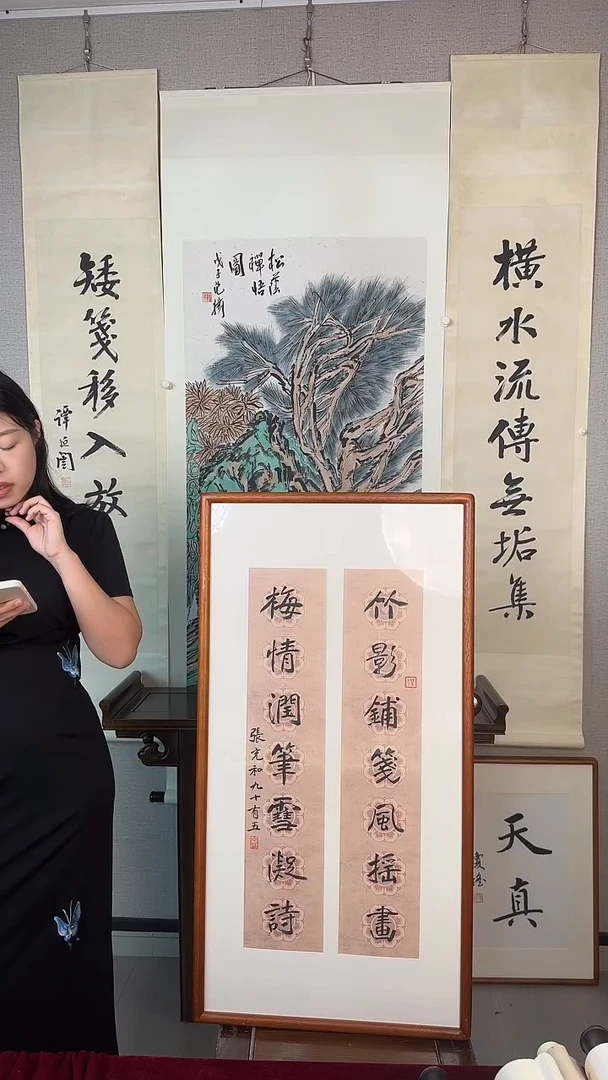 橫水流傳無垢集
矮箋移入放
譚延闓
松蔭
禪悟
圖
竹影鋪箋風揺畫
梅情潤筆雪凝詩
張充和九十有五
天真